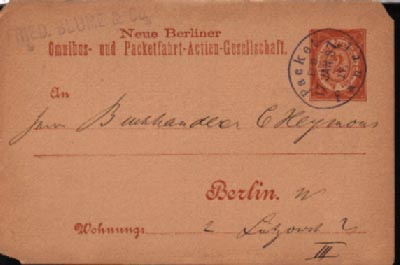 FRIED. BLUME & Co.
Neue Berliner
Omnibus- und Packetfahrt-Actien-Gesellschaft.
2
An
Herrn Buchhändler C Heymons
Berlin. W
Wohnung:
III